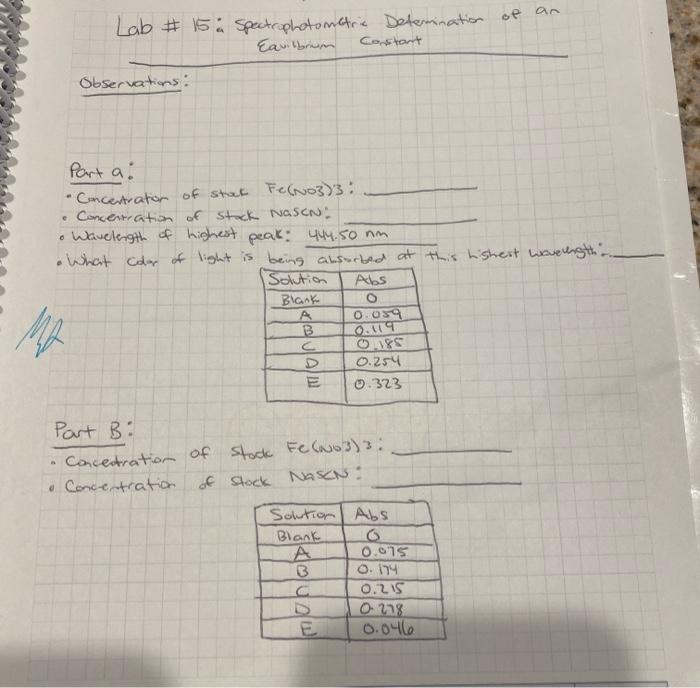 Lab # 15: Spectrophotometric Determination of an
Equilibrium Constant
Observations:
Part a:
• Concentration of stock Fe(NO3)3:
• Concentration of stock NaSCN:
• Wavelength of highest peak: 444.50 nm
• What color of light is being absorbed at this highest wavelength:
Solution Abs
Blank 0
A 0.059
B 0.119
C 0.185
D 0.254
E 0.323
Part B:
• Concentration of stock Fe(NO3)3:
• Concentration of stock NaSCN:
Solution Abs
Blank 0
A 0.075
B 0.174
C 0.215
D 0.278
E 0.046